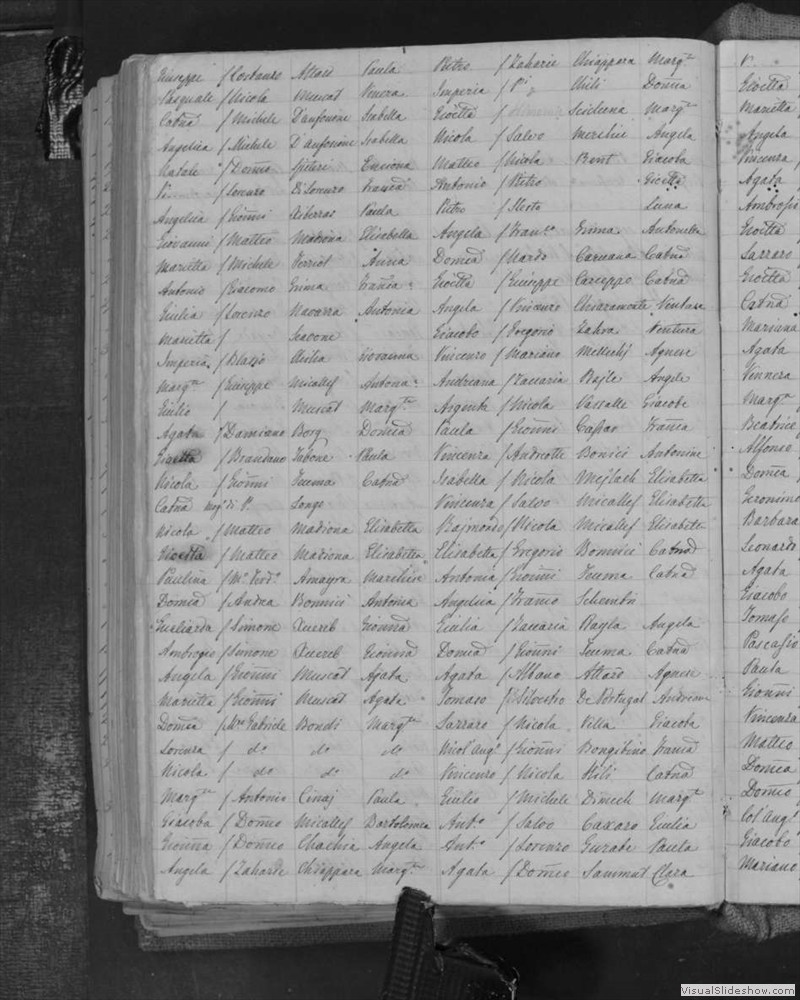 Giuseppe / Costanzo Attard Paula Pietro / Zaharie Chiappara Margta
Pasquale / Nicola Muscat Venera Imperia / Pi Mili Domca
Catna / Michele D'anfonone Isabella Gioetta / Scicluna Margta
Angelica / Michele D'anfonine Isabella Nicola / Salvo Angela
Natale / Domco Enciona Matteo / Nicola Bont Giacoba
Pi / Lorenzo Di Lorenzo Francia Antonio / Pietro Gioetta
Angelica / Gionni Xiberras Paula Pietro / Luna
Giovanni / Matteo Madiona Elisabella Angela / Franco Grima Antonella
Marietta / Michele Anna Domca / Nardo Caruana Catna
Antonio / Giacomo Grima Francia Gioetta / Giuseppe Caruppo Catna
Giulia / Lorenzo Navarra Antonia Angela / Vincenzo Chiaramonte Ventura
Marietta / Giacobo / Gregorio Zahra Ventura
Imperia / Blasio Giovanna Vincenzo / Mariano Mellechj Agnese
Margta / Giuseppe Micallef Antona Andreana / Zaccaria Bajle Angela
Giulio / Muscat Margta Argenta / Nicola Vassalle Giacoba
Agata / Damiano Borg Domca Paula / Gionni Francia
Gioetta / Brandano Tabone Paula Vincenza / Andreotta Bonici Antonina
Nicola / Gionni Zuema Catna Isabella / Nicola Mejlach Elisabetta
Catna Longo Vincenza / Salvo Micallef Elisabetta
Nicola / Matteo Madiona Elisabetta Rajmondo / Nicola Micallef Elisabetta
Gioetta / Matteo Madiona Elisabetta Elisabetta / Gregorio Bonnici Catna
Paulina / Amayra Marchise Antonia / Gionni Zuema Catna
Domca / Andrea Bonnici Antonia Angelica / Franco Schembri
Gugliarda / Simone Xuereb Gionna Giulia / Zaccaria Bayla Angela
Ambrogio / Simone Xuereb Gionna Domca / Gionni Zuema Catna
Angela / Gionni Muscat Agata Agata / Albano Attard Agnese
Marietta / Gionni Muscat Agata Tomaso / Silvestro De Portugal Andriana
Domca / Mro Gabriele Bondi Margta Sarraro / Nicola Villa Giacoba
Lorenza / do do do Nicol'Ango / Gionni Bongibino Francia
Nicola / do do do Vincenzo / Nicola Hili Catna
Margta / Antonio Cinaj Paula Giulio / Michele Dimech Margta
Giacoba / Domco Micallef Bartolomea Anto / Salvo Caxaro Giulia
Gionna / Domco Chachia Angela Anto / Lorenzo Gusabe Paula
Angela / Zaharie Chiappara Margta Agata / Domco Sammut Clara
Pi
Gioetta
Marietta
Angela
Vincenza
Agata
Ambrosio
Gioetta
Sarraro
Gioetta
Catna
Mariana
Agata
Vennera
Margta
Beatrice
Alfonso
Domca
Geronimo
Barbara
Leonardo
Agata
Giacobo
Tomaso
Pascasio
Paula
Gionni
Vincenza
Matteo
Domca
Domco
Col'Ango
Giacobo
Mariano
VisualSlideshow.com